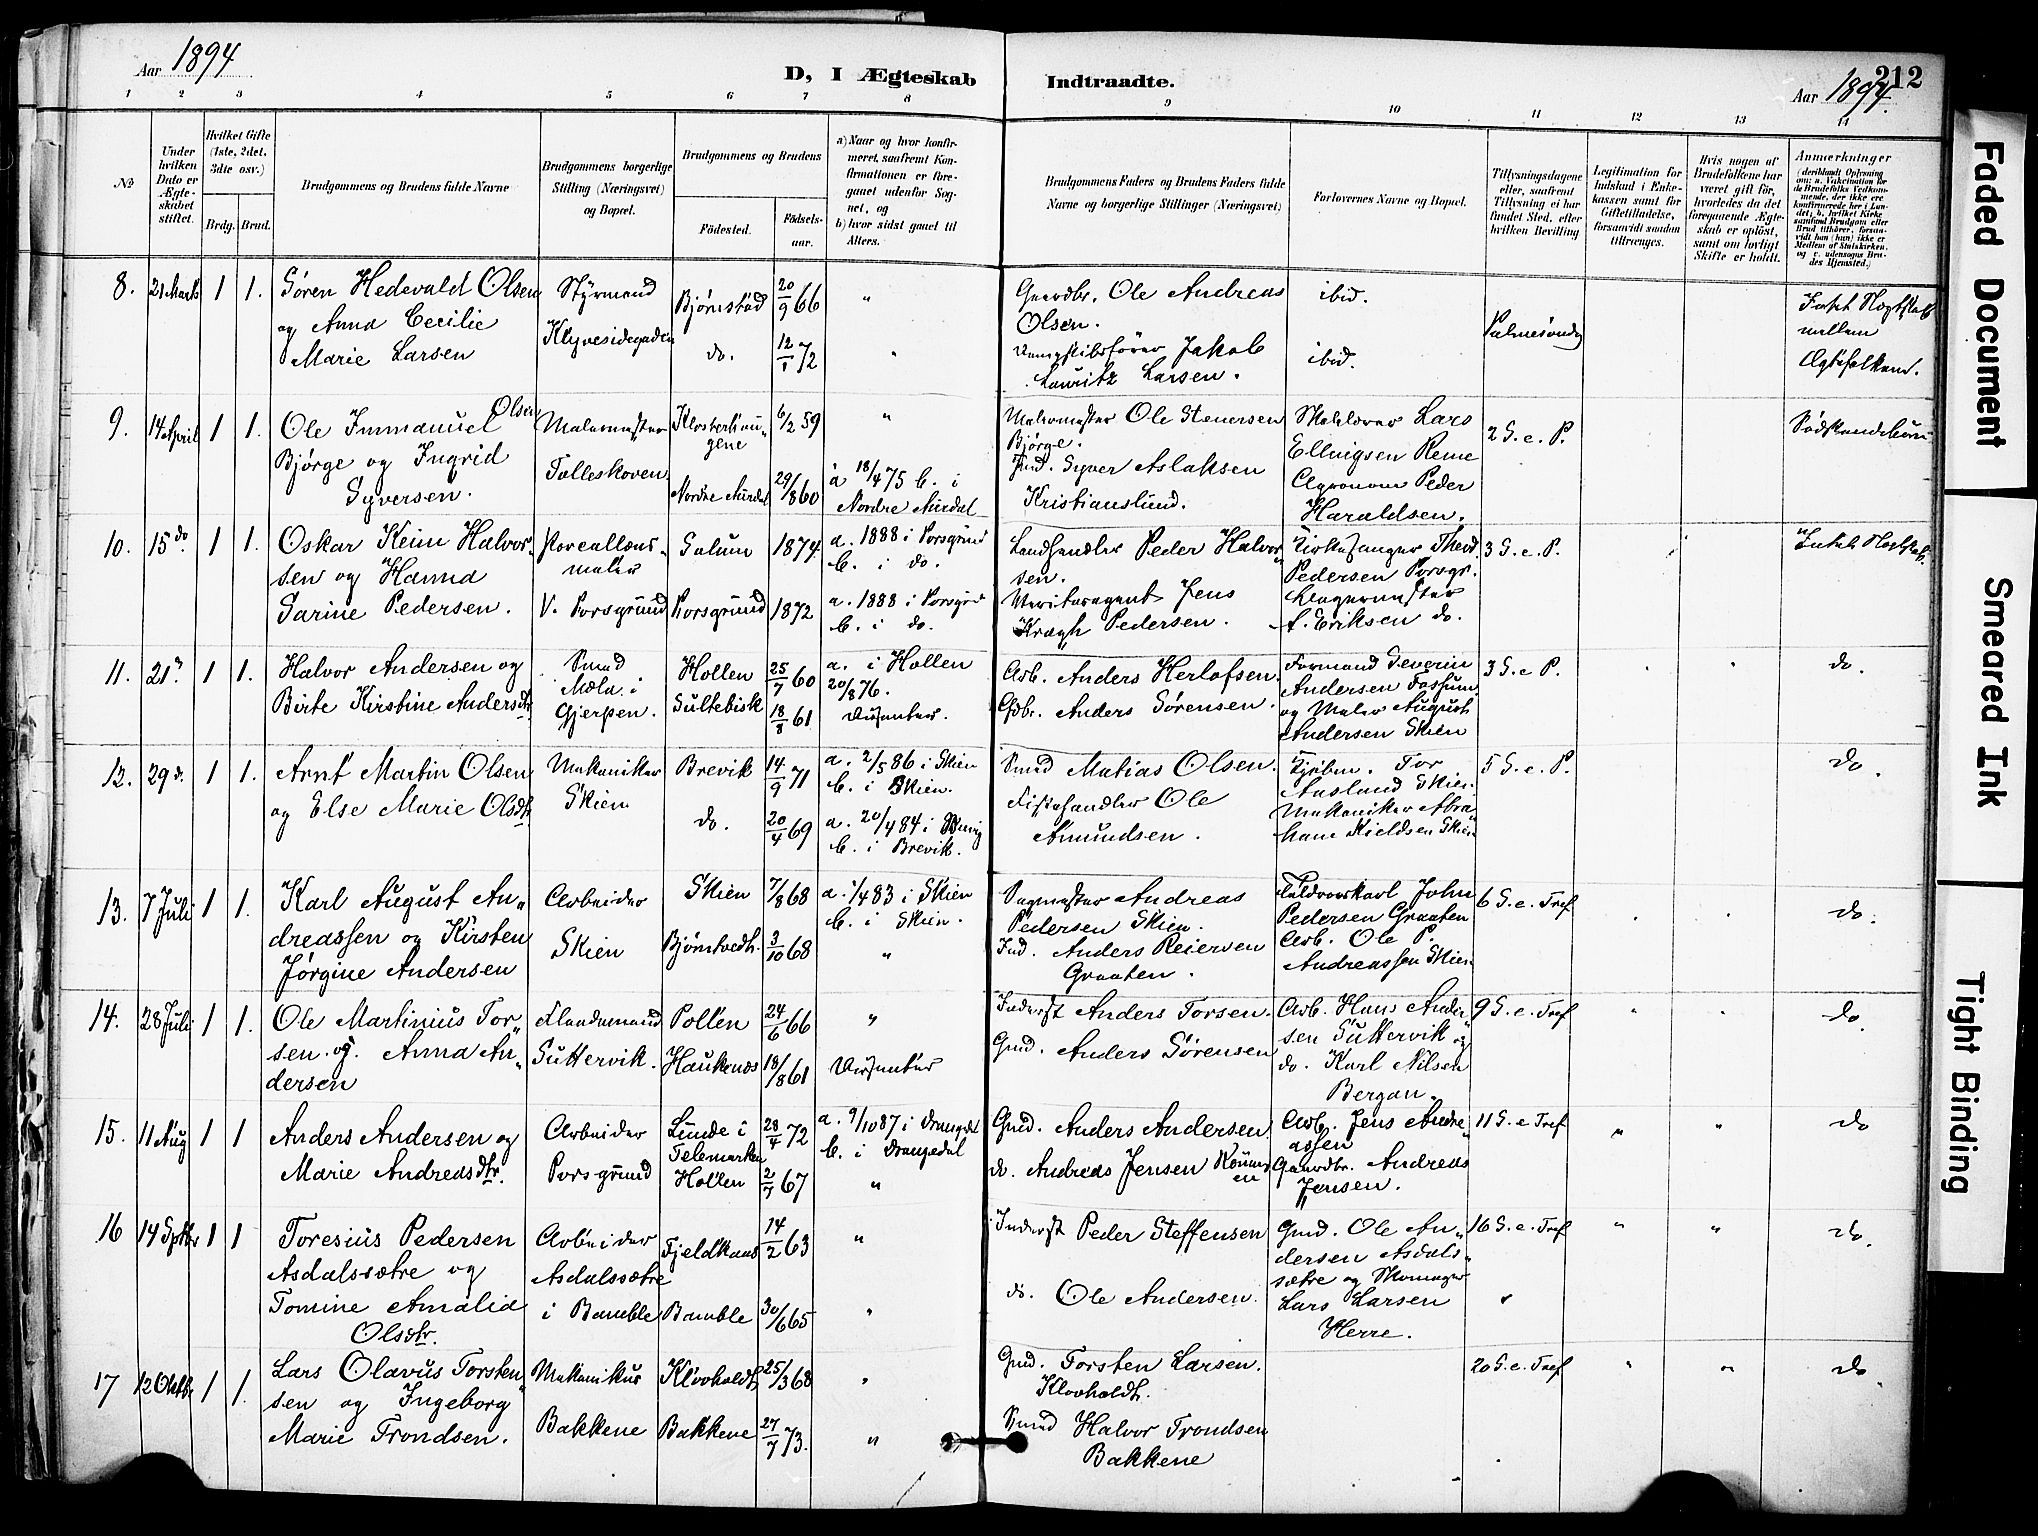 Aar 1894
D, I Ægteskab
Indtraadte.
Aar 1894.
212
1 2 3 4 5 6 7 8 9 10 11 12 13 14
No
Under hvilken Dato er Ægteskabet stiftet.
Hvilket Gifte (1ste, 2det, 3dte osv.)
Brdg. Brud.
Brudgommens og Brudens fulde Navne
Brudgommens borgerlige Stilling (Næringsvei) og Bopæl.
Brudgommens og Brudens
Fødested. Fødselsaar.
a) Naar og hvor konfirmeret, saafremt Konfirmationen er foregaaet udenfor Sognet, og
b) hvor sidst gaaet til Alters.
Brudgommens Faders og Brudens Faders fulde Navne og borgerlige Stillinger (Næringsvei)
Forlovernes Navne og Bopæl.
Tillysningsdagene eller, saafremt Tillysning ei har fundet Sted, efter hvilken Bevilling
Legitimation for Indskud i Enkekassen samt for Giftetilladelse, forsaavidt saadan tiltrænges.
Hvis nogen af Brudefolkene har været gift før, hvorledes da det foregaaende Ægteskab er opløst, samt om lovligt Skifte er holdt.
Anmærkninger
8. 21 Marts 1 1. Søren Hedevald Olsen
og Anna Cecilie
Marie Larsen
Styrmand
Klyvesidegaden
Bjørnstad 20/9 66 "
do. 12/1 72 "
Gaardbr. Ole Andreas
Olsen.
Dampskibsfører Jakob
Lauritz Larsen.
ibid.
ibid.
Palmesøndag
mellem
Ægtefolkene.
9. 14 April 1 1. Ole Immanuel Olsen
Bjørge og Ingrid
Syversen.
Malermester
Falleskoven
Klosterhaugene 6/2 59 "
Nordre Aurdal 29/8 60 a 18/4 75 b. i
Nordre Aurdal
Malermester Ole Stenersen
Bjørge.
Ind. Syver Aslaksen
Kristianslund.
Lars
Ellingsen Reme
Agronom Peder
Haraldsen.
2 S. e. P.
10. 15 do 1 1. Oskar Keim Halvor-
sen og Hanna
Sarine Pedersen.
Porcellæns-
maler
V. Porsgrund
Solum 1874. a. 1888 i Porsgrund
b. i do.
Porsgrund 1872 a. 1888 i Porsgrd
b. i do.
Landhandler Peder Halvor-
sen.
Jens
Kragh Pedersen.
Kirkesanger Theod.
Pedersen Porsgr.
Eriksen do.
3 S. e. P.
11. 21 " 1 1. Halvor Andersen og
Birte Kirstine Andersdtr
Smed
Mæla i
Gjerpen.
Hollen 25/7 60 a. i Hollen
20/8 76.
Sultebisk 18/8 61 Dissenter.
Arb. Anders Herlofsen.
Gbr. Anders Sørensen.
Formand Severin
Andersen Fossum
og Maler August
Andersen Skien
3 S. e P. " " do.
12. 29 d. 1 1. Arnt Martin Olsen
og Else Marie Olsdtr
Mekaniker
Skien
Brevik 14/9 71 a. 2/5 86 i Skien
b. i Skien.
do. 20/4 69 a. 20/4 84 i Brevig
b. i Brevik.
Smed Matias Olsen.
Fiskehandler Ole
Amundsen.
Kjøbm. Tor
Aasland Skien.
Mekaniker Abra-
ham Kieldsen Skien
5 S. e. P. do.
13. 7 Juli 1 1. Karl August An-
dreassen og Kirsten
Jørgine Andersen
Arbeider
Skien
Skien 7/8 68 a. 1/4 83 i Skien
b. i Skien.
Bjørntvedt. 3/10 68 "
Sagmester Andreas
Pedersen Skien.
Ind. Anders Reiersen
Graaten.
John
Pedersen Graaten
Arb. Ole P.
Andreassen Skien
6 S. e. Tref " " do.
14. 28 Juli 1 1. Ole Martinius Tor-
sen og Anna An-
dersen
Flandremand
Suttervik.
Pollen 24/6 66 "
Haukenes 18/8 61 Dissenter
Inderst Anders Torsen.
Gmd. Anders Sørensen
Arb. Hans Ander-
sen Suttervik og
do. Karl Nilsen
Bergan.
9 S. e. Tref " " do.
15. 11 Aug 1 1 Anders Andersen og
Marie Andreasdtr.
Arbeider
Porsgrund
Lunde i
Telemarken 28/4 72 a. 9/10 87 i Drangedal
b. i Drangedal
Hollen 2/7 67 "
Gmd. Anders Andersen
do. Andreas Jensen
Arb. Jens Andre-
assen
Gaardbr. Andreas
Jensen.
11 S. e Tref " " do
16 14 Septbr 1 1 Toresius Pedersen
Asdalssætre og
Tomine Amalia
Olsdtr.
Arbeider
Asdalssætre
i Bamble
Fjeldkaas 14/2 63 "
Bamble 30/6 65 "
Inderst Peder Steffensen
do. Ole Andersen.
Gmd. Ole An-
dersen Asdals-
sætre og Skomager
Lars Larsen
Herre.
16 S. e. Tref " " do.
17 12 Oktbr 1 1. Lars Olavus Torsten-
sen og Ingeborg
Marie Trondsen.
Mekanikus
Bakkene
Klovholdt 25/3 68 "
Bakkene 27/7 73. "
Gmd. Torsten Larsen.
Klovholdt.
Smed Halvor Trondsen
Bakkene
20 S. e. Tref " " do
Faded Document
Smeared Ink
Tight Binding